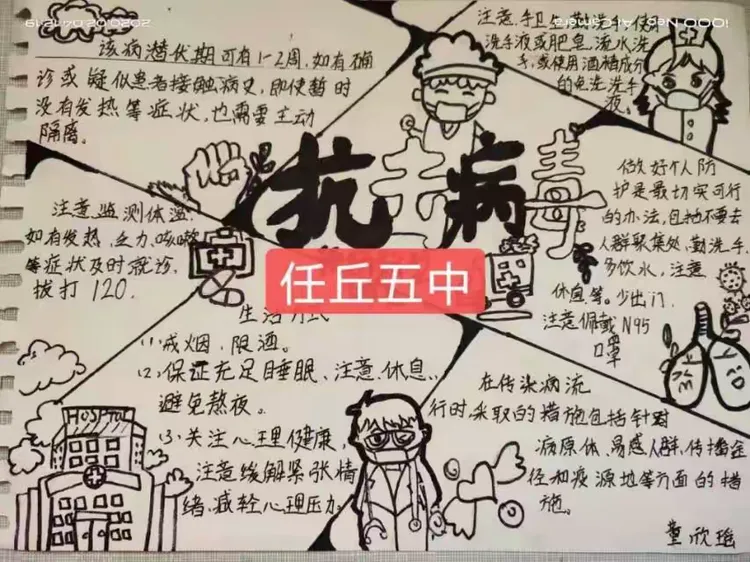 该病潜伏期可有1-2周,如有确
诊或疑似患者接触病史,即使暂时
没有发热等症状,也需要主动
隔离。
注意手卫生勤洗手,使用
洗手液或肥皂,流水洗
手,或使用酒精成分
的免洗洗手
液。
抗击病毒
任丘五中
做好个人防
护是最切实可行
的办法,包袘不要去
人群聚集处,勤洗手,
多饮水,注意
休息等。少出门,
注意佩戴N95
口罩
注意监测体温,
如有发热,乏力,咳嗽
等症状及时就诊,
拔打120.
生活方式
(1)戒烟,限酒。
(2)保证充足睡眠、注意休息,
避免熬夜。
(3)关注心理健康,
注意缓解紧张情
绪,减轻心理压力
HOSPITAL
在传染病流
行时,采取的措施包括针对
病原体,易感人群,传播途
径和疫源地等方面的措
施。
董欣瑶